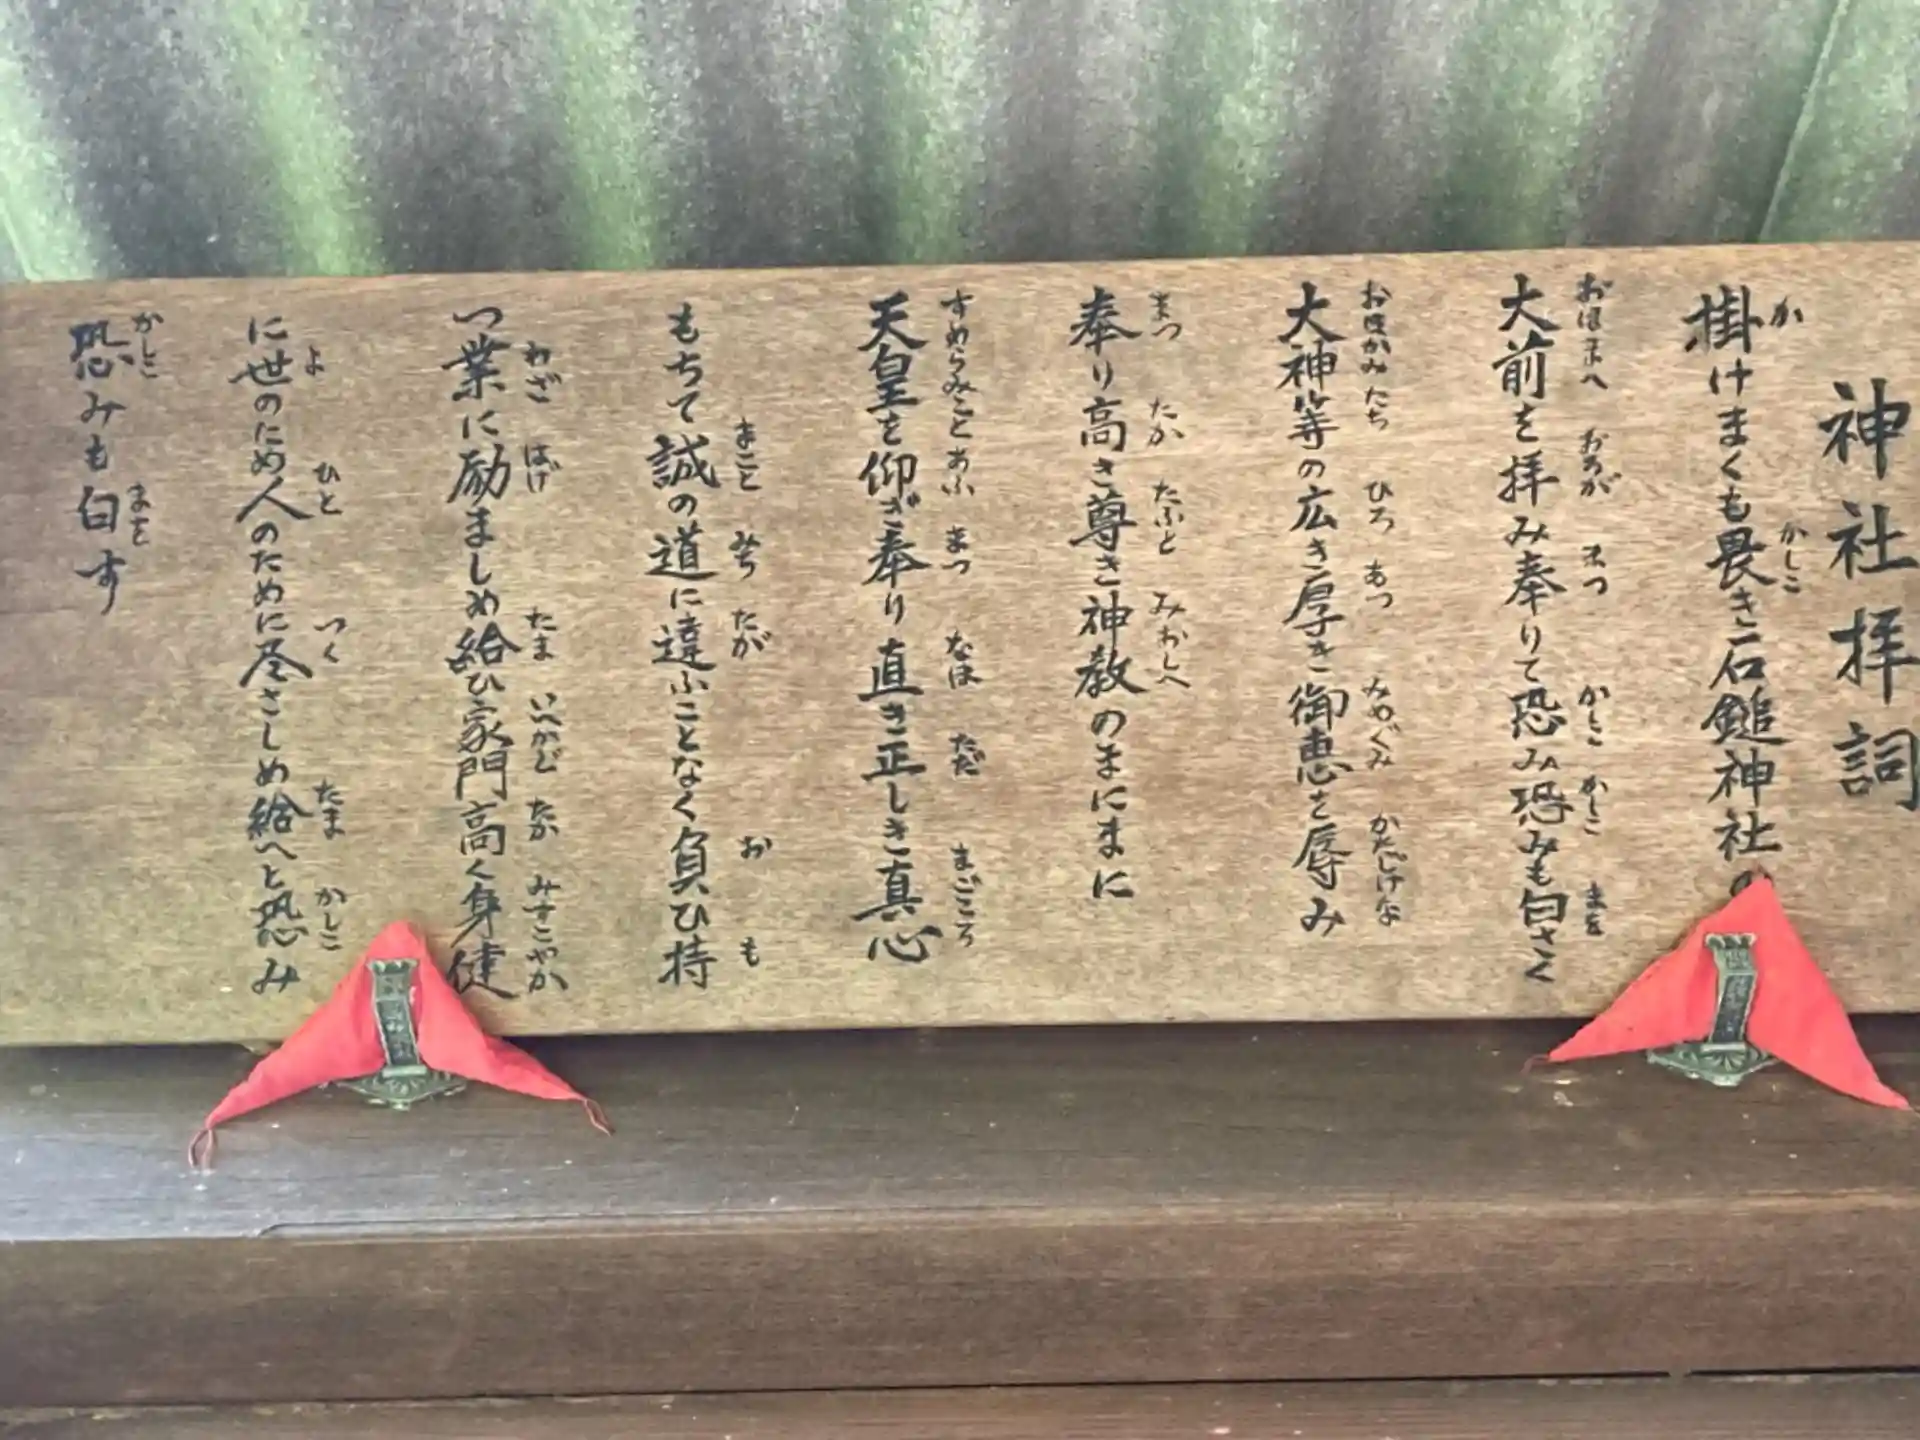 神社拝詞
掛けまくも畏き石鎚神社の
大前を拝み奉りて恐み恐みも白さく
大神等の広き厚き御恵を辱み
奉り高き尊き神教のまにまに
天皇を仰ぎ奉り直き正しき真心
もちて誠の道に違ふことなく負ひ持
つ業に励ましめ給ひ家門高く身健
に世のため人のために尽さしめ給へと恐み
恐みも白す